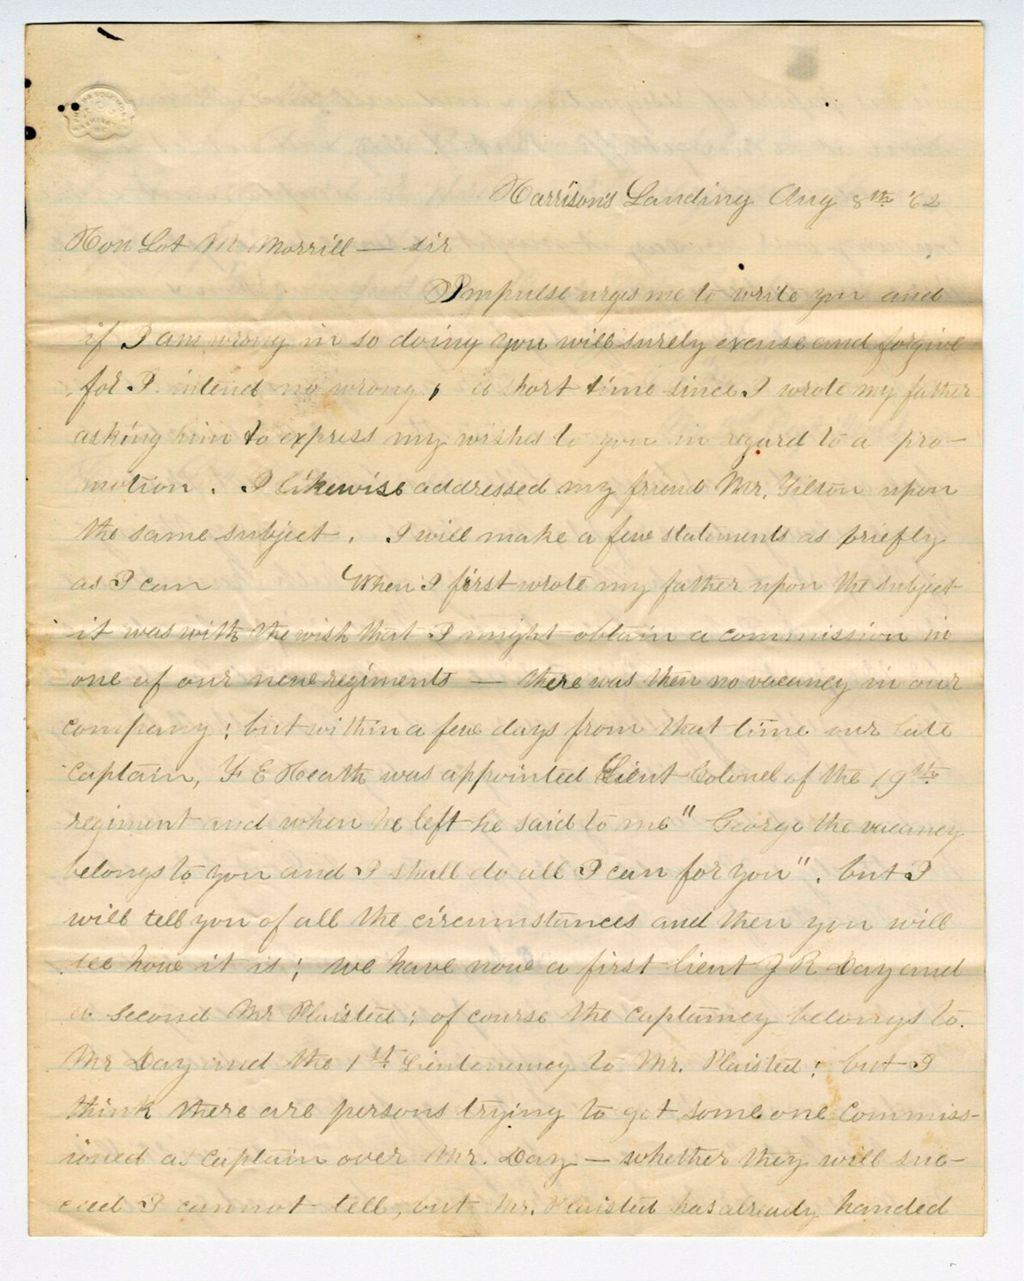 Harrison's Landing Aug 8th '62
Hon Lot M Morrill — sir
Impulse urges me to write you and
if I am wrong in so doing you will surely excuse and forgive
for I intend no wrong, a short time since I wrote my father
asking him to express my wishes to you in regard to a pro-
motion. I likewise addressed my friend Mr. Tilson upon
the same subject. I will make a few statements as briefly
as I can When I first wrote my father upon the subject
it was with the wish that I might obtain a commission in
one of our new regiments — there was then no vacancy in our
company; but within a few days from that time our late
Captain, F E Heath was appointed Lieut Colonel of the 19th
regiment and when he left he said to me "George the vacancy
belongs to you and I shall do all I can for you". but I
will tell you of all the circumstances and then you will
see how it is; we have now a first lieut J R Day and
a second Mr Plaisted; of course the captaincy belongs to
Mr Day and the 1st Lieutenancy to Mr. Plaisted; but I
think there are persons trying to get some one commiss-
ioned as captain over Mr. Day — whether they will suc-
ceed I cannot tell, but Mr. Plaisted has already handed